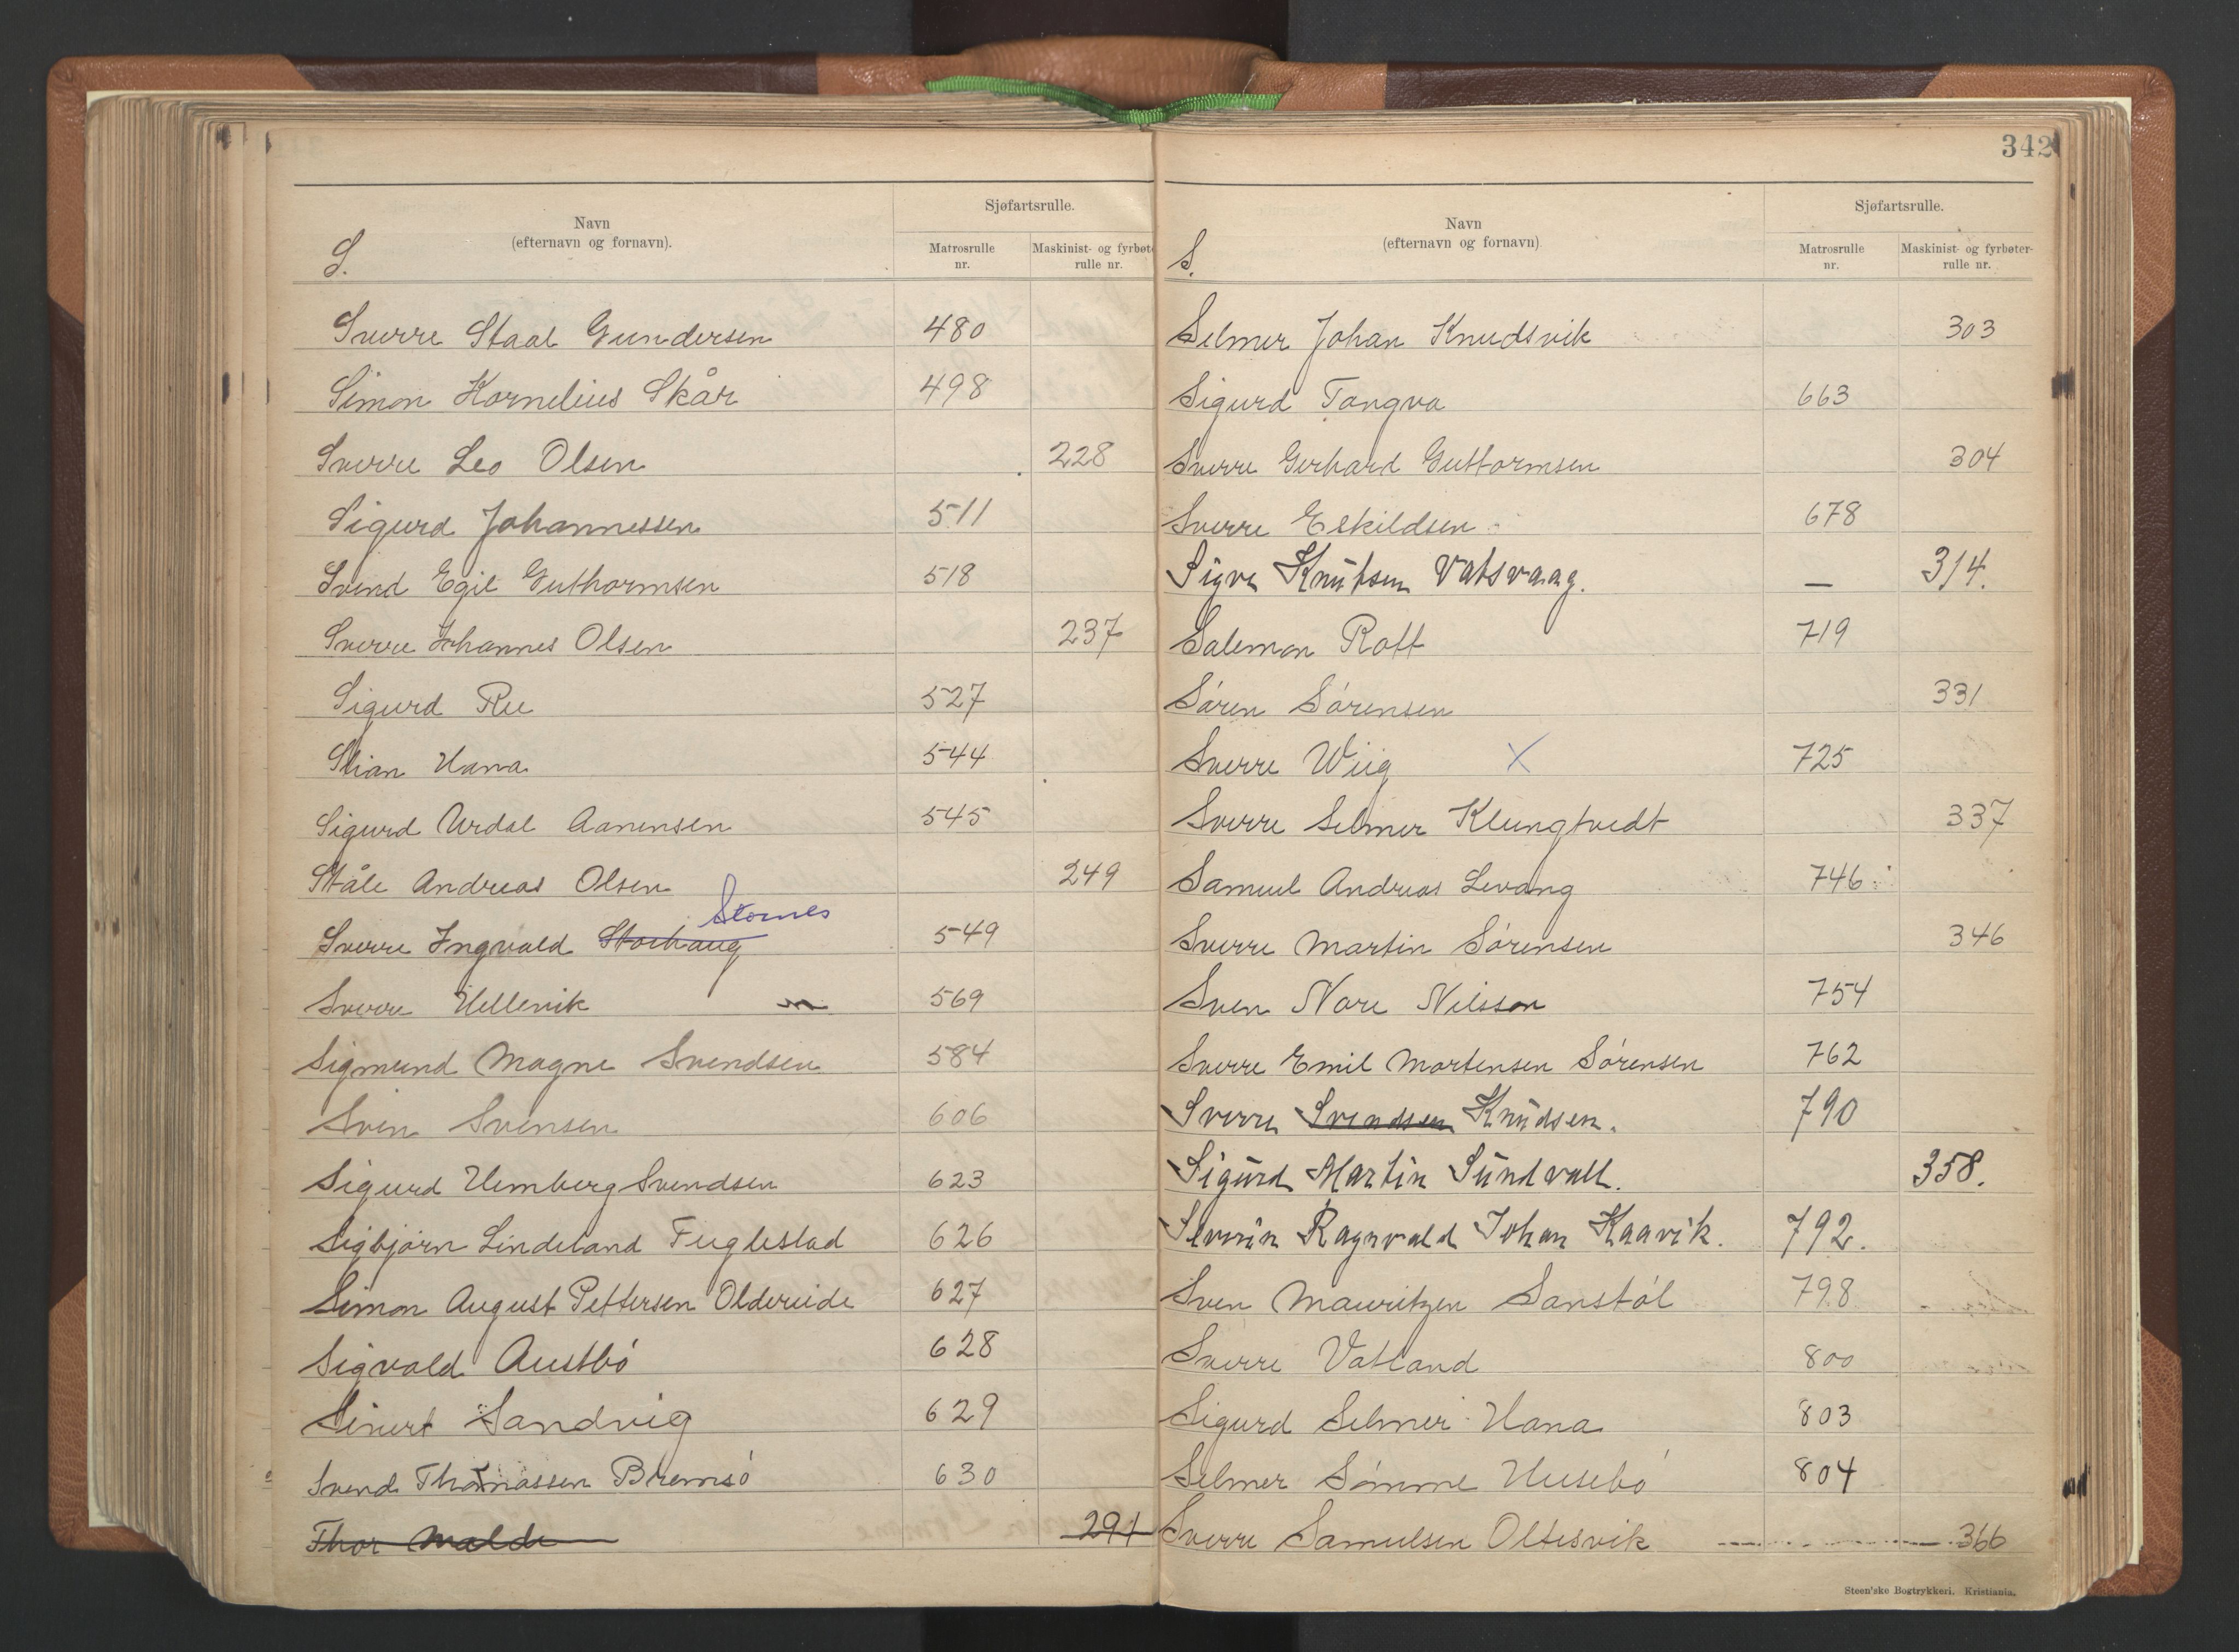 342
Navn
(efternavn og fornavn).
Sjøfartsrulle.
Matrosrulle
nr.
Maskinist- og fyrbøt
rulle nr.
S.
Sverre Staal Gundersen 480
Simon Kornelius Skår 498
Sverre Leo Olsen 228
Sigurd Johannessen 511
Svend Egil Guthormsen 518
Sverre Johannes Olsen 237
Sigurd Ree 527
Stian Hana 544
Sigurd Urdal Aanensen 545
Ståle Andreas Olsen 249
Stornes
Sverre Ingvald Storhaug 549
Sverre Hellevik 569
Sigmund Magne Svendsen 584
Sven Svensen 606
Sigurd Hemberg Svendsen 623
Sigbjørn Lindeland Fuglestad 626
Simon August Pettersen Oldereide 627
Sigvald Austbó 628
Sivert Sandvig 629
Svend Thomassen Bremsó 630
Thor Malde 291
Navn
(efternavn og fornavn)
Sjøfartsrulle.
Matrosrulle
nr.
Maskinist- og fyrbøter-
rulle nr.
S.
Selmer Johan Knudsvik 303
Sigurd Tangva 663
Sverre Gerhard Guttormsen 304
Sverre Eskildsen 678
Sigve Knutsen Vatsvaag. — 314.
Salemon Rott 719
Sóren Sórensen 331
Sverre Wiig X 725
Sverre Selmer Klungtvedt 337
Samuel Andreas Levang 746
Sverre Martin Sórensen 346
Sven Nore Nilsson 754
Sverre Emil Mortensen Sórensen 762
Sverre Svendsen Knudsen. 790
Sigurd Martin Sundvall. 358.
Severin Ragnvald Johan Kaavik. 792.
Sven Mauritzen Sanstól 798
Sverre Vatland 800
Sigurd Selmer Hana 803
Selmer Sómme Husebó 804
Sverre Samuelsen Oltesvik 366
Steen'ske Bogtrykkeri. Kristiania.